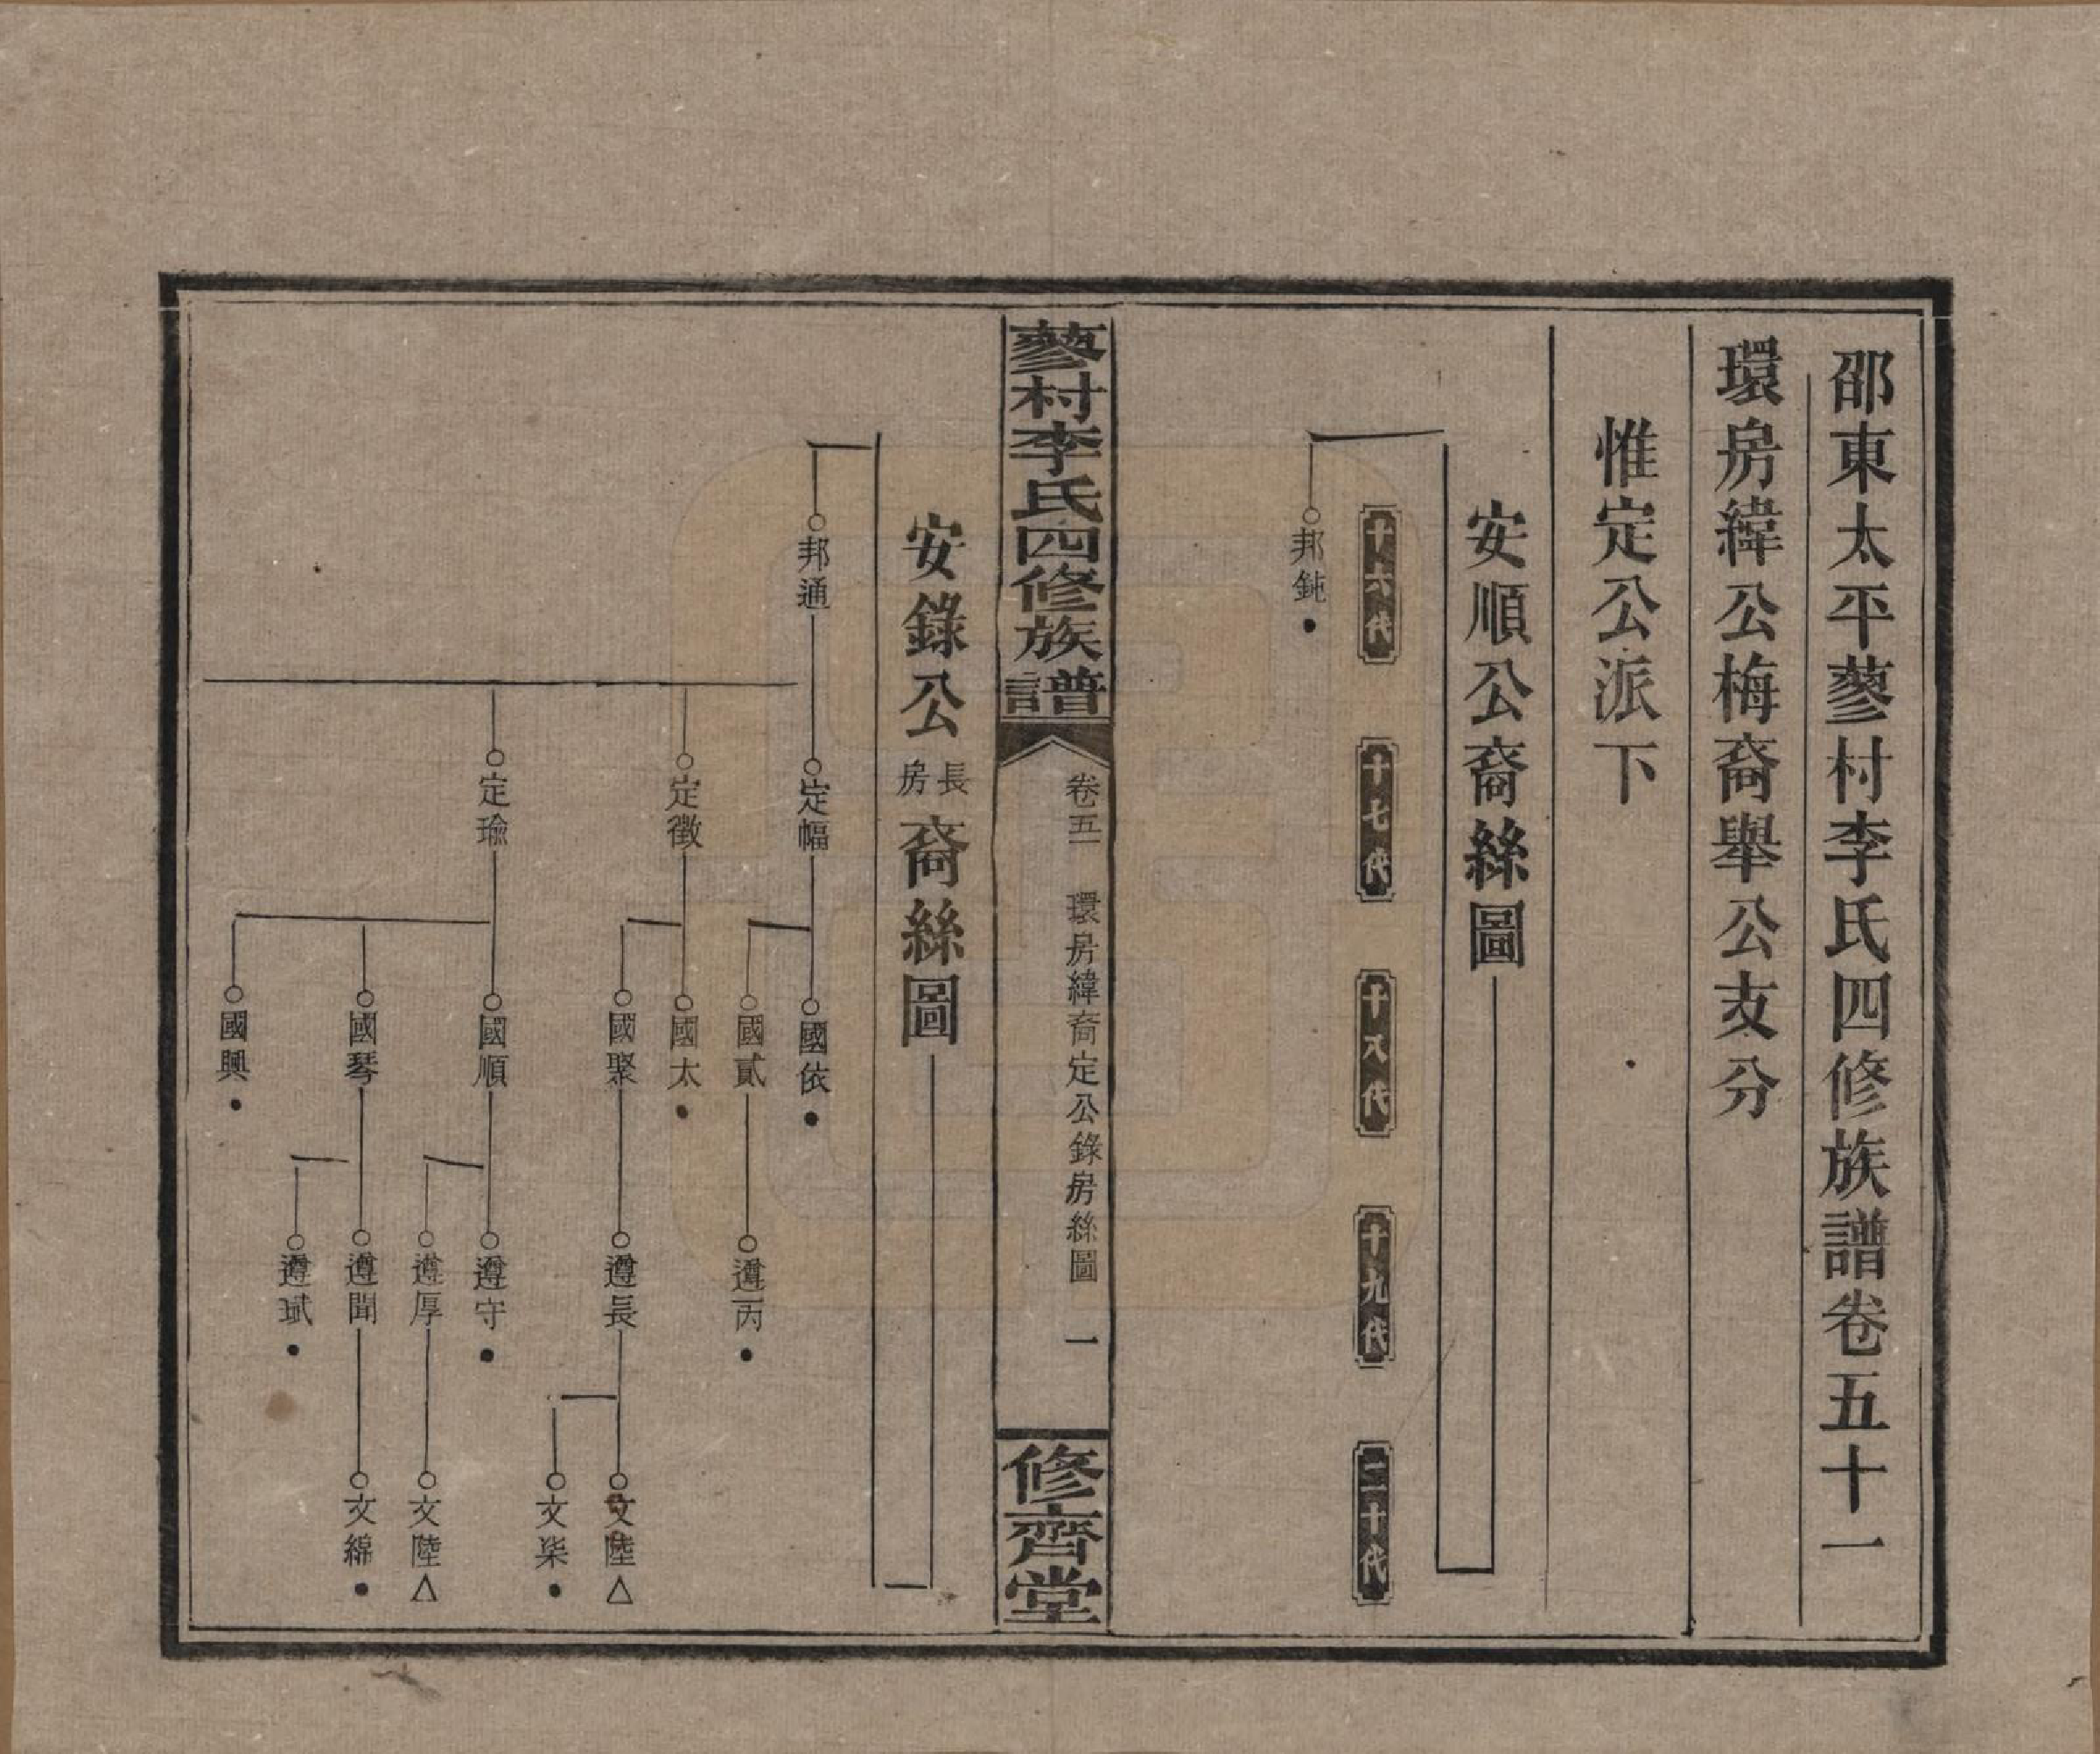 邵東太平蓼村李氏四修族譜卷五十一
環房緯公梅裔舉公支分
惟定公派下
安順公裔絲圖
十六代
十七代
十八代
十九代
二十代
邦鈍
蓼村李氏四修族譜
卷五一 環房緯裔定公錄房絲圖 一
修齊堂
安錄公長房裔絲圖
邦通
定幅
國依
國貳
遵丙
定徵
國太
國聚
遵長
文陸
文柒
定瑜
國順
遵守
遵厚
文陸
國琴
遵聞
文綿
遵珷
國興